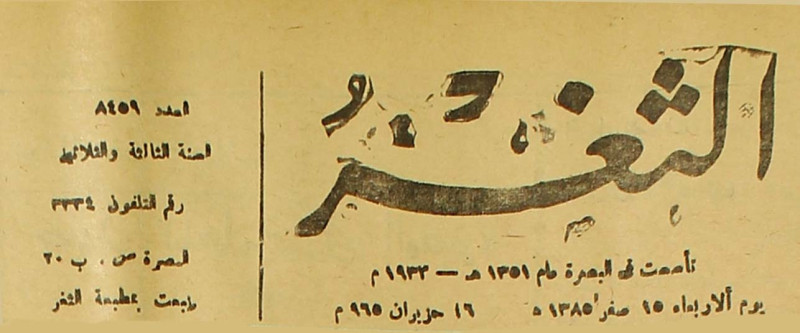 الثغر
تأسست في البصرة عام ١٣٥١ هـ — ١٩٣٣ م
يوم ألاربعاء ١٥ صفر ١٣٨٥ ه ١٦ حزيران ٩٦٥ م
العدد ٨٤٥٩
السنة الثالثة والثلاثين
رقم التلفون ٣٣٣٤
البصرة ص . ب ٢٠
طبعت بمطبعة الثغر